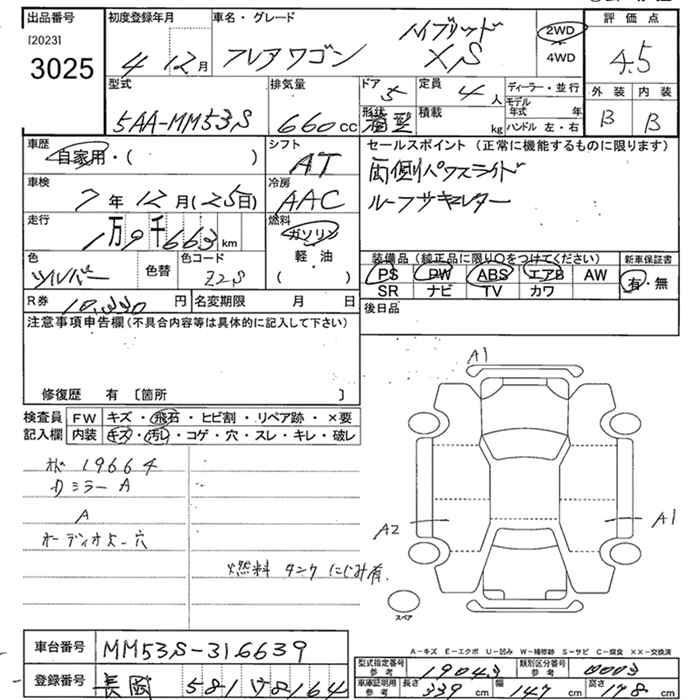 出品番号
[2023]
3025
初度登録年月
4 12月
車名・グレード
フレアワゴン
ハイブリッド
XS
2WD
4WD
評価点
4.5
外装 内装
B B
型式
5AA-MM53S
排気量
660cc
ドア
5
定員
4人
形状
積載
kg
ディーラー・並行
モデル年式 年
ハンドル 左・右
車歴
自家用・( )
シフト
AT
セールスポイント (正常に機能するものに限ります)
両側パワスライド
車検
7年12月(25日)
冷房
AAC
走行
1万9千663km
燃料
ガソリン
軽油
( )
色
シルバー
色替
色コード
Z2S
装備品 (純正品に限り○をつけてください)
新車保証書
PS PW ABS エアB AW
有・無
SR ナビ TV カワ
R券
円
名変期限 月 日
後日品
注意事項申告欄(不具合内容等は具体的に記入して下さい)
修復歴 有 〔箇所 〕
検査員記入欄
FW キズ・飛石・ヒビ割・リペア跡・×要
内装 キズ・汚レ・コゲ・穴・スレ・キレ・破レ
19664
ミラーA
A
燃料タンク にじみ有
A1
A2
A1
スペア
車台番号
MM53S-316639
登録番号
長岡 581 17 8164
A-キズ E-エクボ U-凹み W-補修跡 S-サビ C-腐食 XX-交換済
型式指定番号 参考
19043
類別区分番号 参考
0003
車庫証明用 参考
長さ 339cm
幅 147cm
高さ 178cm